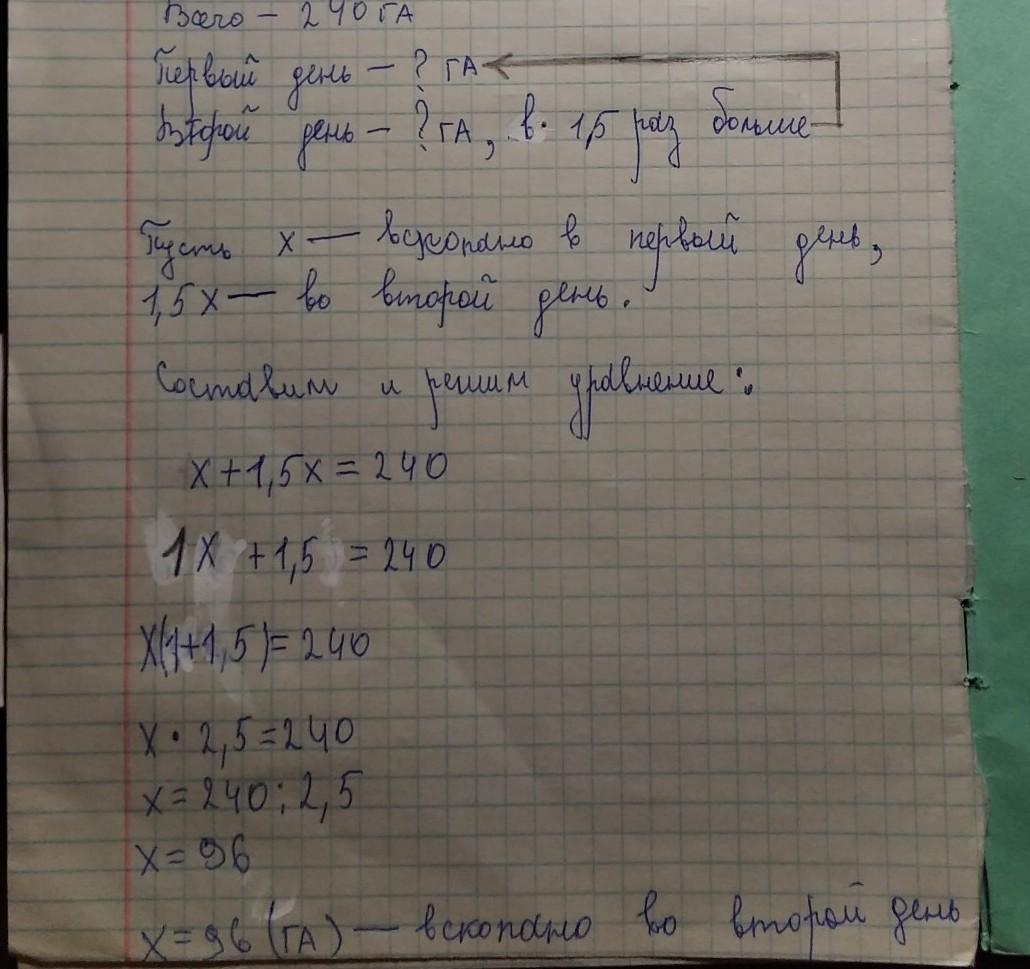 Всего — 240 ГА
Первый день — ? ГА
Второй день — ? ГА, в 1,5 раз больше
Пусть х — вскопано в первый день,
1,5х — во второй день.
Составим и решим уравнение:
х+1,5х=240
1х +1,5 =240
х(1+1,5)=240
х·2,5=240
х=240:2,5
х=96
х=96(ГА) — вскопано во второй день